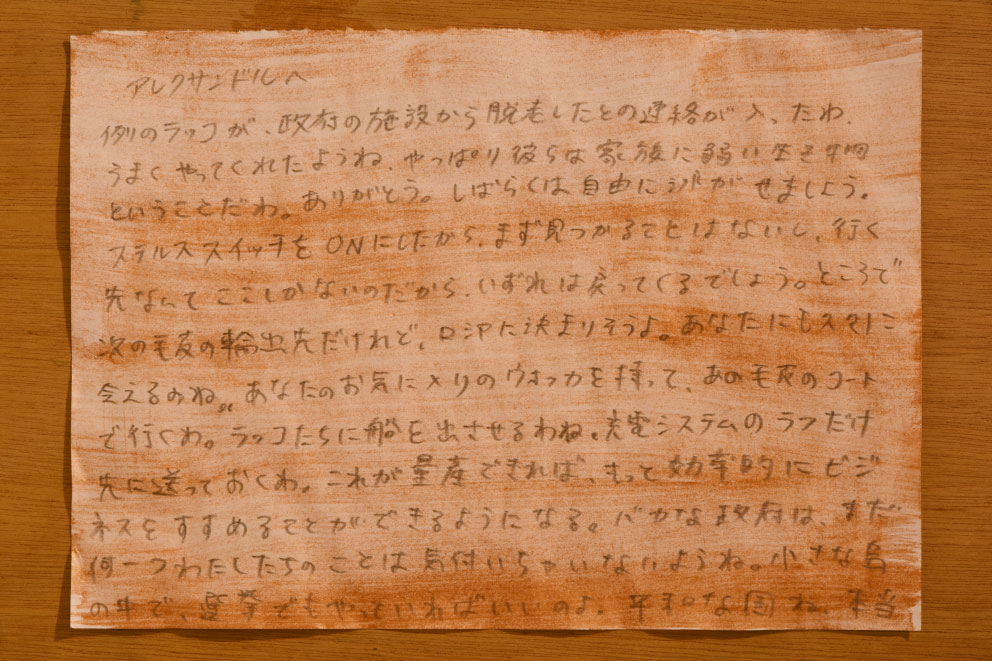 アレクサンドルへ
例のラッコが、政府の施設から脱走したとの連絡が入ったわ。
うまくやってくれたようね。やっぱり彼らは家族に弱い生き物
ということだわ。ありがとう。しばらくは自由に がせましょう。
ステルススイッチをONにしたから、まず見つかることはないし、行く
先なんてここしかないのだから、いずれは戻ってくるでしょう。ところで
次の毛皮の輸出先だけれど、ロシアに決まりそうよ。あなたにもスグに
会えるわね。あなたのお気に入りのウォッカを持って、あの毛皮のコート
で行くわ。ラッコたちに船を出させるわね。充電システムのラフだけ
先に送っておくわ。これが量産できれば、もっと効率的にビジ
ネスをすすめることができるようになる。バカな政府は、まだ
何一つわたしたちのことは気付いちゃいないようね。小さな島
の中で、選挙でもやっていればいいのよ。平和な国ね、本当